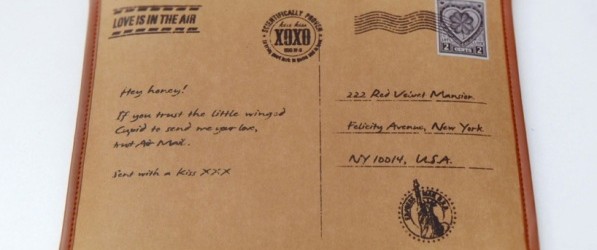 LOVE IS IN THE AIR
SCIENTIFICALLY PROVEN
XOXO
2 CENTS 2
Hey honey!
If you trust the little winged
Cupid to send me your love,
trust Air Mail.
Sent with a kiss XXX
222 Red Velvet Mansion
Felicity Avenue, New York
NY 10014, U.S.A.